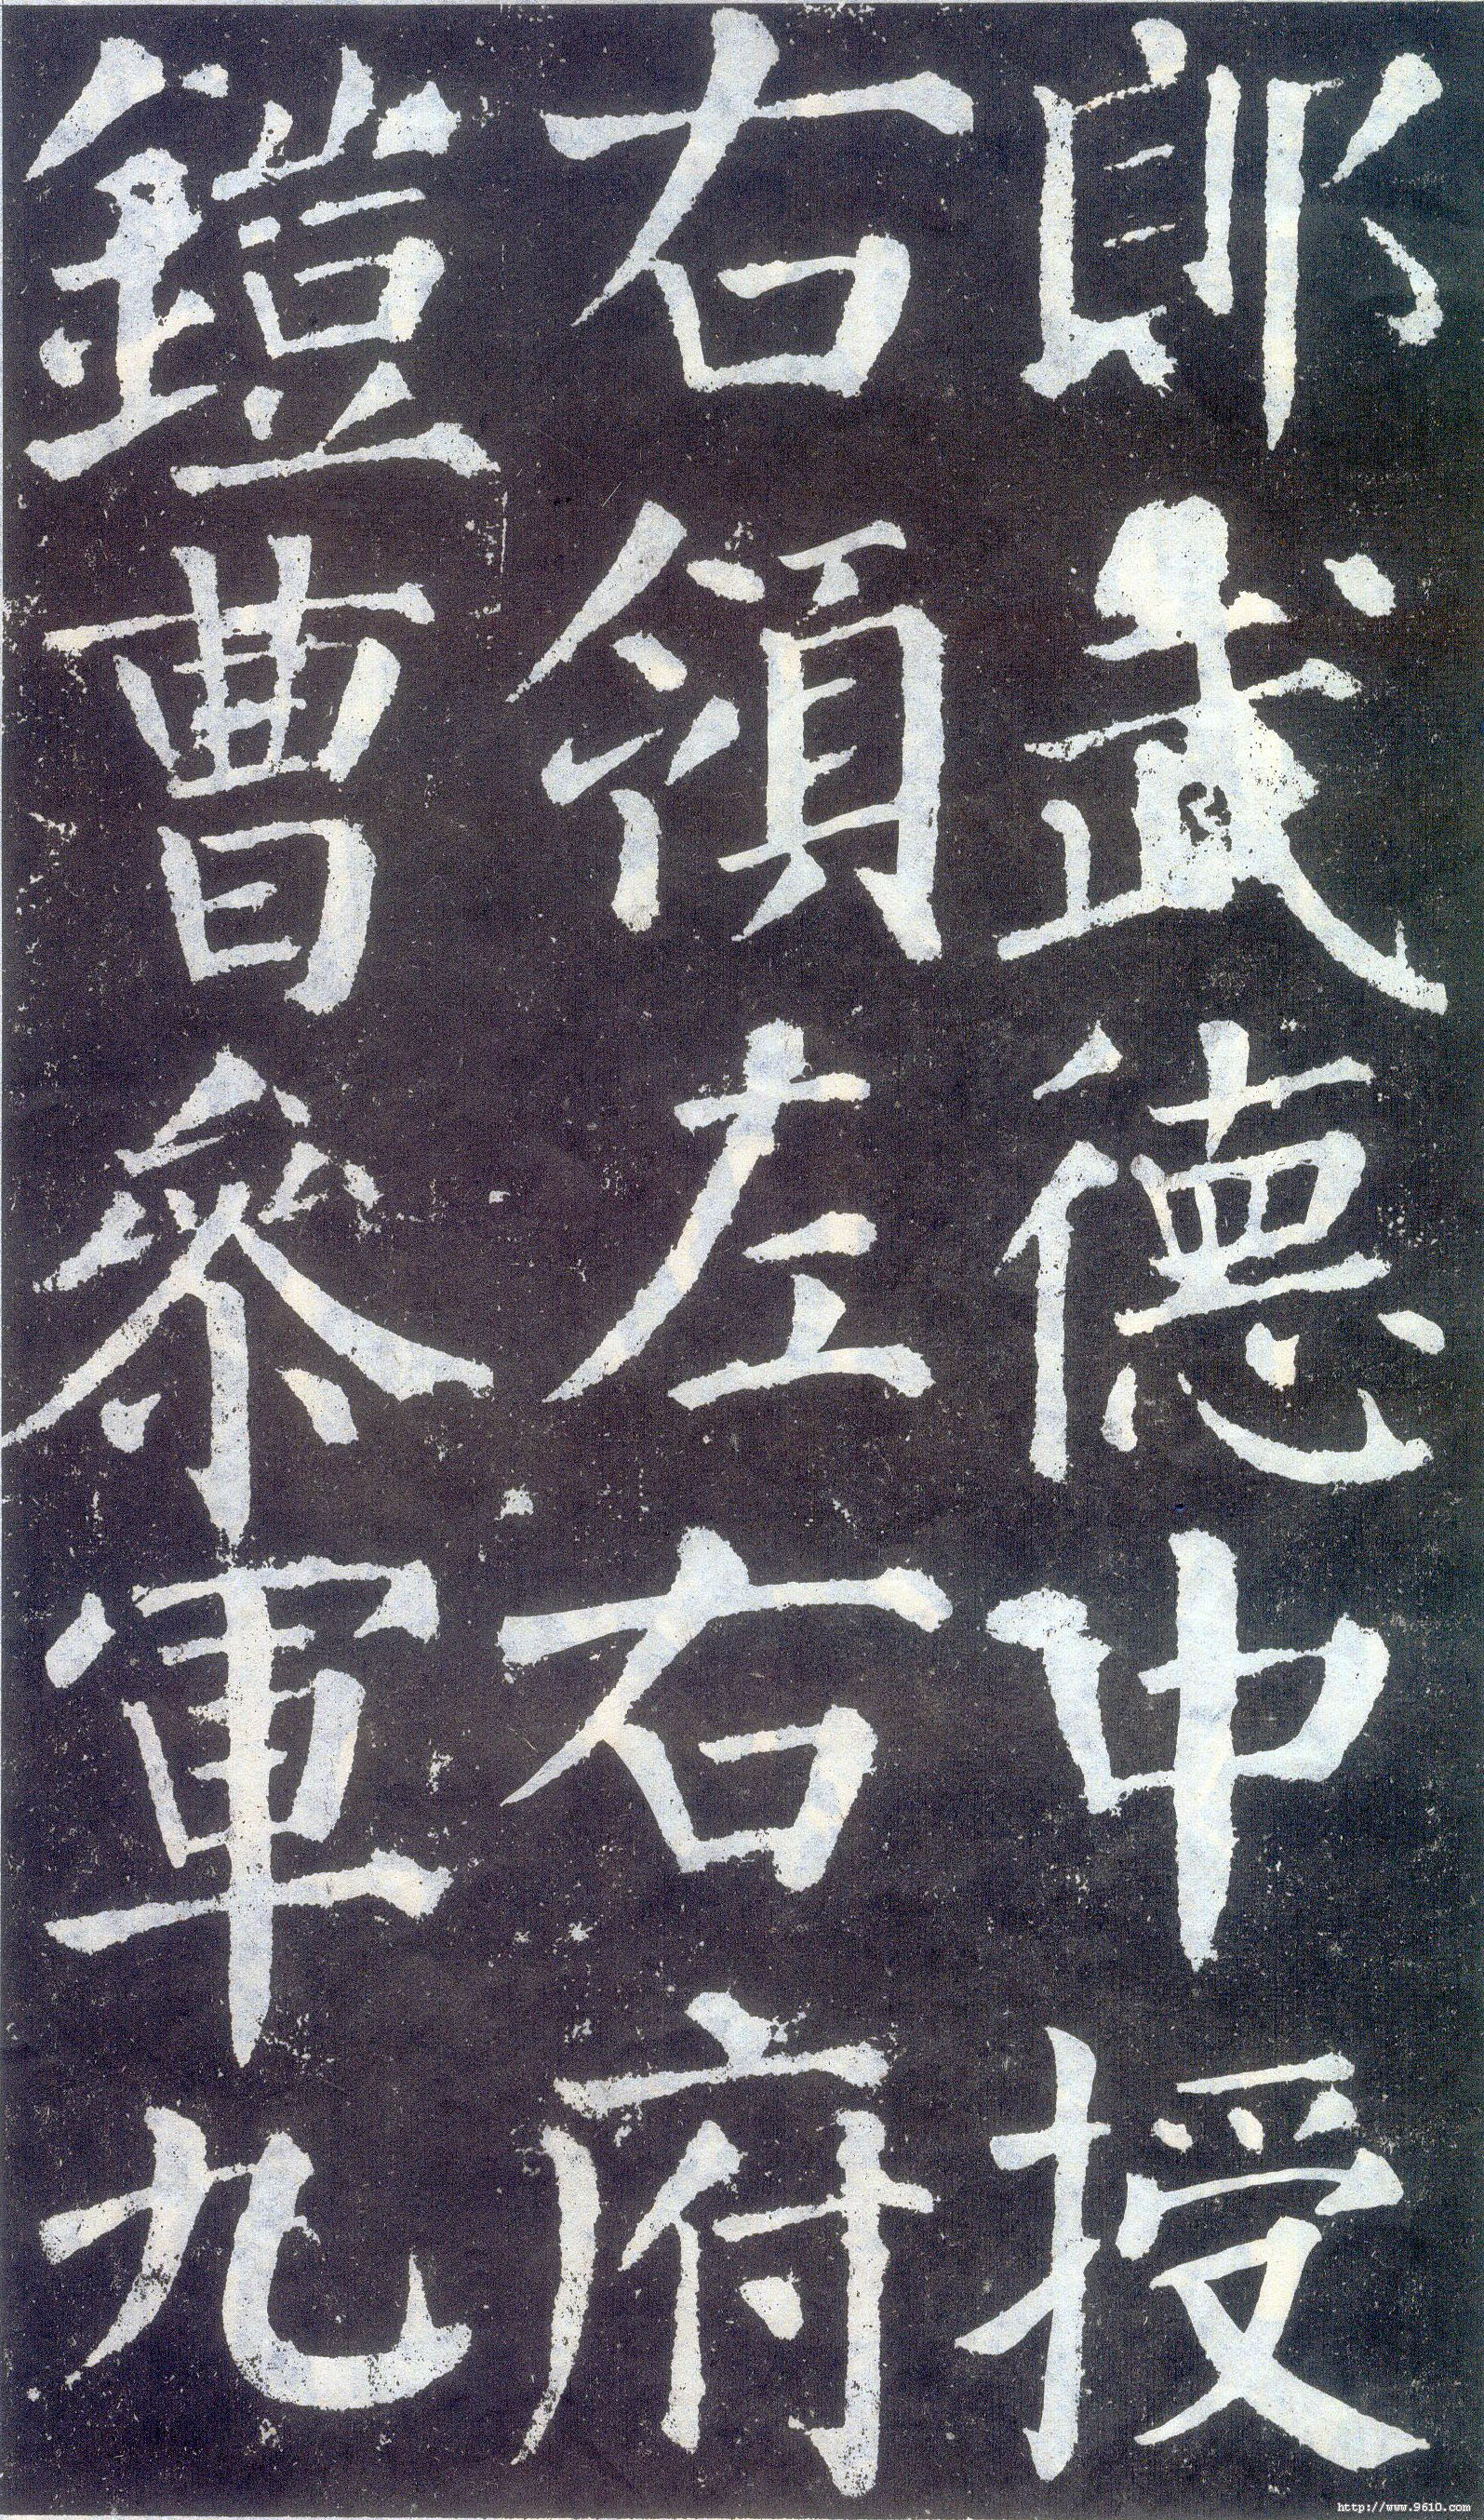 郎武德中授
右領左右府
鎧曹參軍九
http://www.9610.com